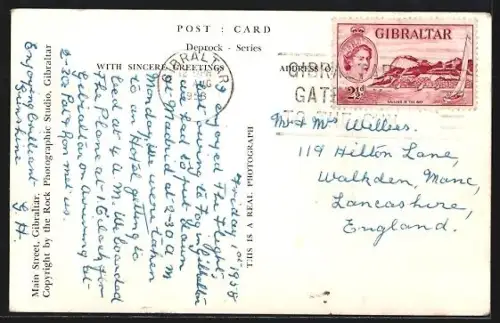 POST : CARD
Deprock - Series
WITH SINCERE GREETINGS
ADDRESS O
GIBRALTAR
AUG
1958
GIBRALTAR
GAT
GIBRALTAR
2½
Friday 1st 1958
enjoyed The Flight
to Gibraltar
we had to put down
at Madrid at 2-30 a m
Monday we were taken
to an Hotel getting to
bed at 4 a.m. We boarded
The Plane at 1 o'clock for
Gibraltar arriving at
2-30
Enjoying brilliant
Sunshine
G.H.
THIS IS A REAL PHOTOGRAPH
Main Street, Gibraltar.
Copyright by the Rock Photographic Studio, Gibraltar
Mr & Mrs Willies.
119 Hilton Lane,
Walkden, Manc,
Lancashire,
England.